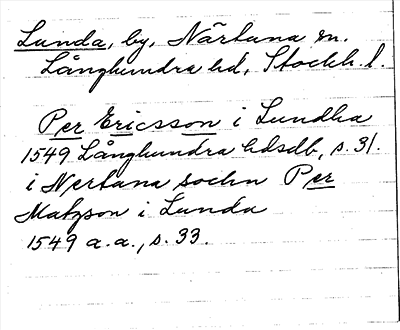 Lunda, by, Närtuna sn.
Långhundra hd, Stockh. l.
Per Ericsson i Lundha
1549 Långhundra hdsdb, s. 31.
i Nertana sochn Per
Matzson i Lunda
1549 a.a., s. 33.